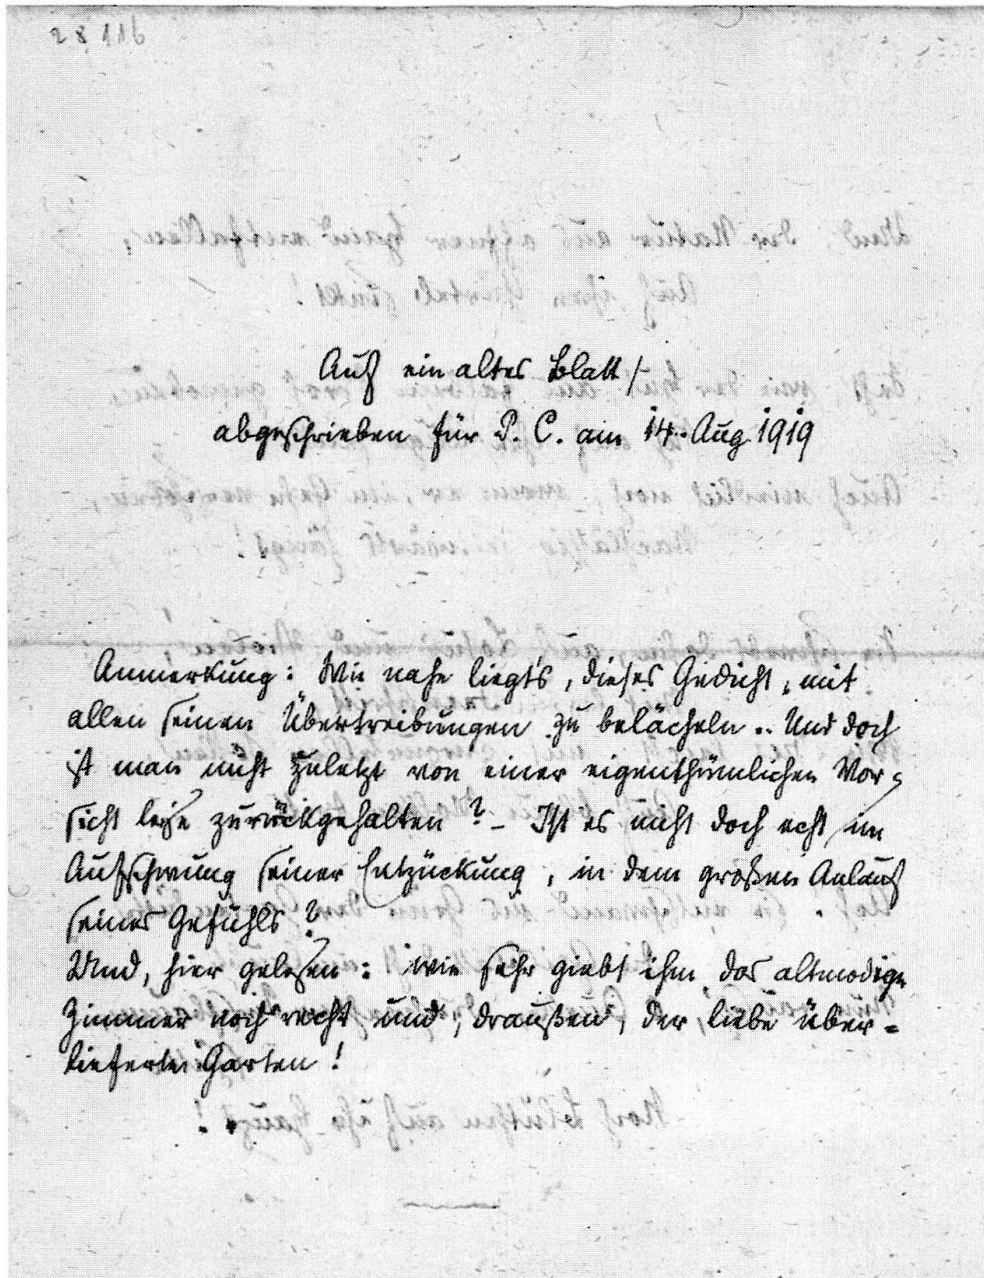 28116
Auf ein altes Blatt/
abgeschrieben für P. C. am 14. Aug. 1919
Anmerkung: Wie nahe liegt's, dieses Gedicht, mit
allen seinen Übertreibungen zu belächeln.. Und doch
ist man nicht zuletzt von einer eigenthümlichen Vor-
sicht leise zurückgehalten? – Ist es nicht doch echt im
Aufschwung seiner Entzückung, in dem großen Anlauf
seines Gefühls?
Und, hier gelesen: wie sehr giebt ihm das altmodige
Zimmer noch recht und, draußen, der liebe über-
lieferte Garten!